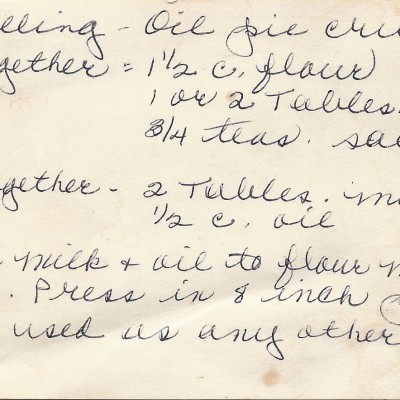 lling - Oil pie cru
gether = 1 1/2 c. flour
1 or 2 Tables.
3/4 teas. sa
gether - 2 Tables. m
1/2 c. oil
milk + oil to flour m
. Press in 8 inch
used as any other